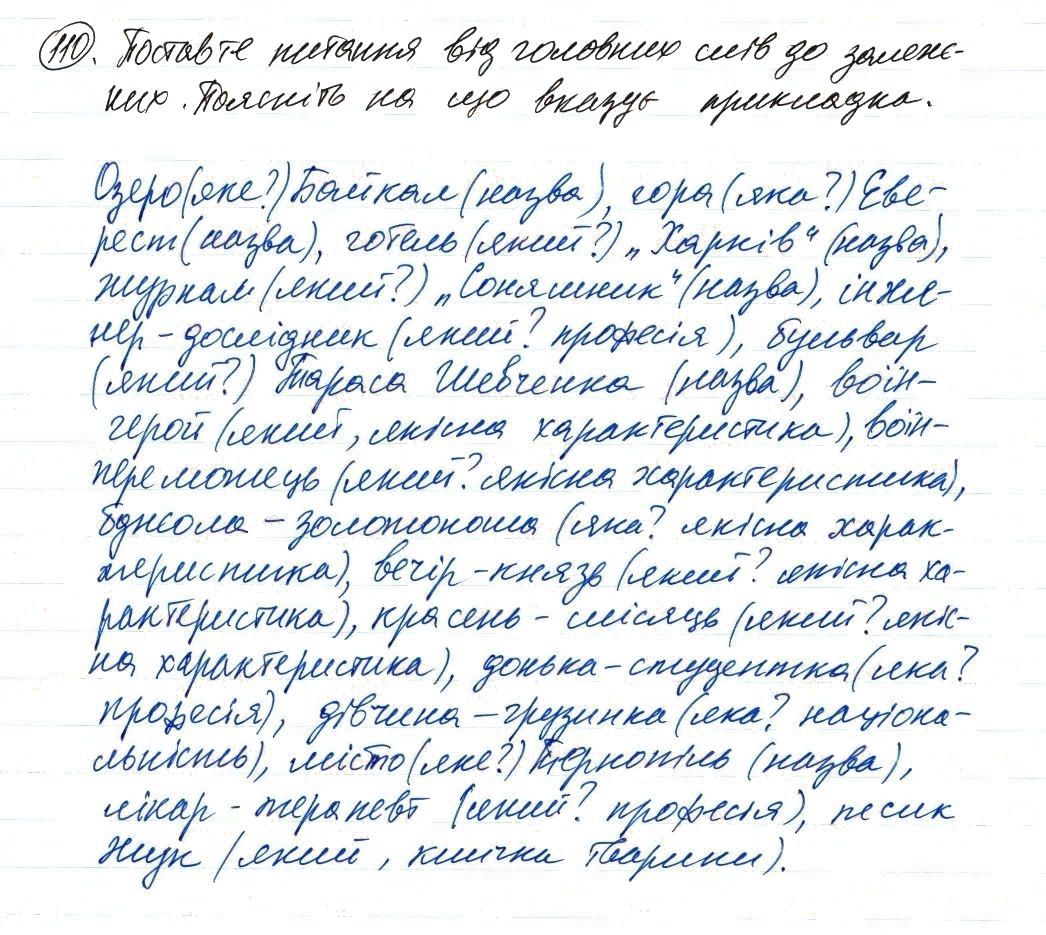 110. Поставте питання від головних слів до залеж-
них. Поясніть на що вказує прикладка.
Озеро (яке?) Байкал (назва), гора (яка?) Еве-
рест (назва), готель (який?) „Харків“ (назва),
журнал (який?) „Соняшник“ (назва), інже-
нер - дослідник (який? професія), бульвар
(який?) Тараса Шевченка (назва), воїн-
герой (який, якісна характеристика), воїн-
переможець (який? якісна характеристика),
бджола - золотоноша (яка? якісна харак-
теристика), вечір - князь (який? якісна ха-
рактеристика), красень - місяць (який? якіс-
на характеристика), донька - студентка (яка?
професія), дівчина - грузинка (яка? націона-
льність), місто (яке?) Тернопіль (назва),
лікар - терапевт (який? професія), песик
Жук (який, кличка тварини).